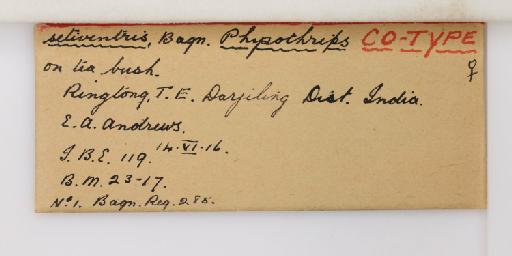 setiventris, Bagn. Physothrips CO-TYPE
on tea bush. ♀
Ringtong, T.E. Darjiling Dist. India.
E.A. Andrews.
I.B.E. 119. 14.VI.16.
B.M. 23-17.
No 1. Bagn. Reg. 285.